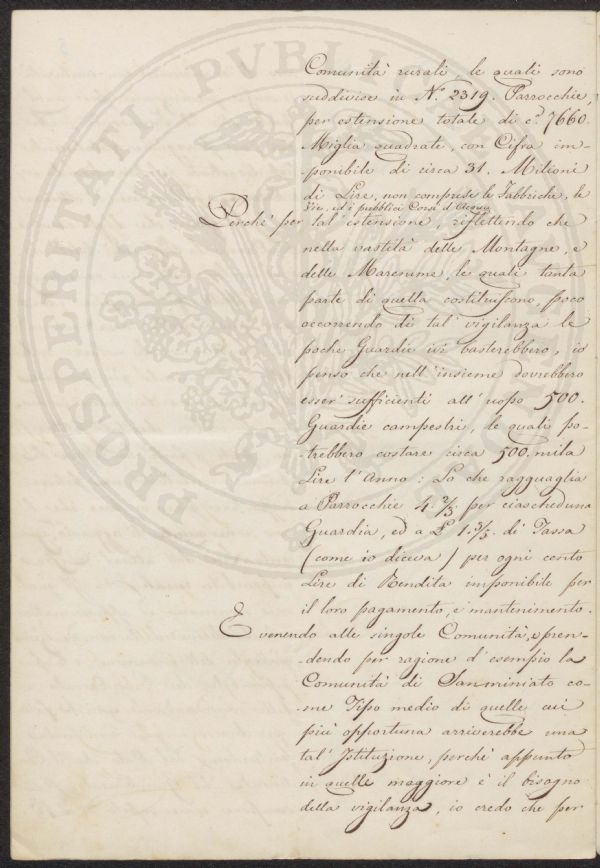 Comunità rurali, le quali sono
suddivise in N.º 2319. Parrocchie,
per estensione totale di c.ª 7660.
Miglia quadrate, con Cifra im-
-ponibile di circa 31. Milioni
di Lire, non comprese le Fabbriche, le
Vie, ed i pubblici Corsi d'Acqua.
Perchè per tal'estensione, riflettendo che
nella vastità delle Montagne, e
delle Maremme, le quali tanta
parte di quella costituiscono, poco
occorrendo di tal vigilanza le
poche Guardie ivi basterebbero, io
penso che nell'insieme dovrebbero
esser sufficienti all'uopo 500.
Guardie campestri, le quali po-
-trebbero costare circa 500. mila
Lire l'Anno: Lo che ragguaglia
a Parrocchie 4. 2/3. per ciascheduna
Guardia, ed a £ 1. 3/5. di Tassa
(come io diceva) per ogni cento
Lire di Rendita imponibile per
il loro pagamento, e mantenimento.
E venendo alle singole Comunità, e pren-
-dendo per ragione d'esempio la
Comunità di Sanminiato co-
-me Tipo medio di quelle cui
più opportuna arriverebbe una
tal'Istituzione, perchè appunto
in quelle maggiore è il bisogno
della vigilanza, io credo che per
PROSPERITATI PVBLICAE